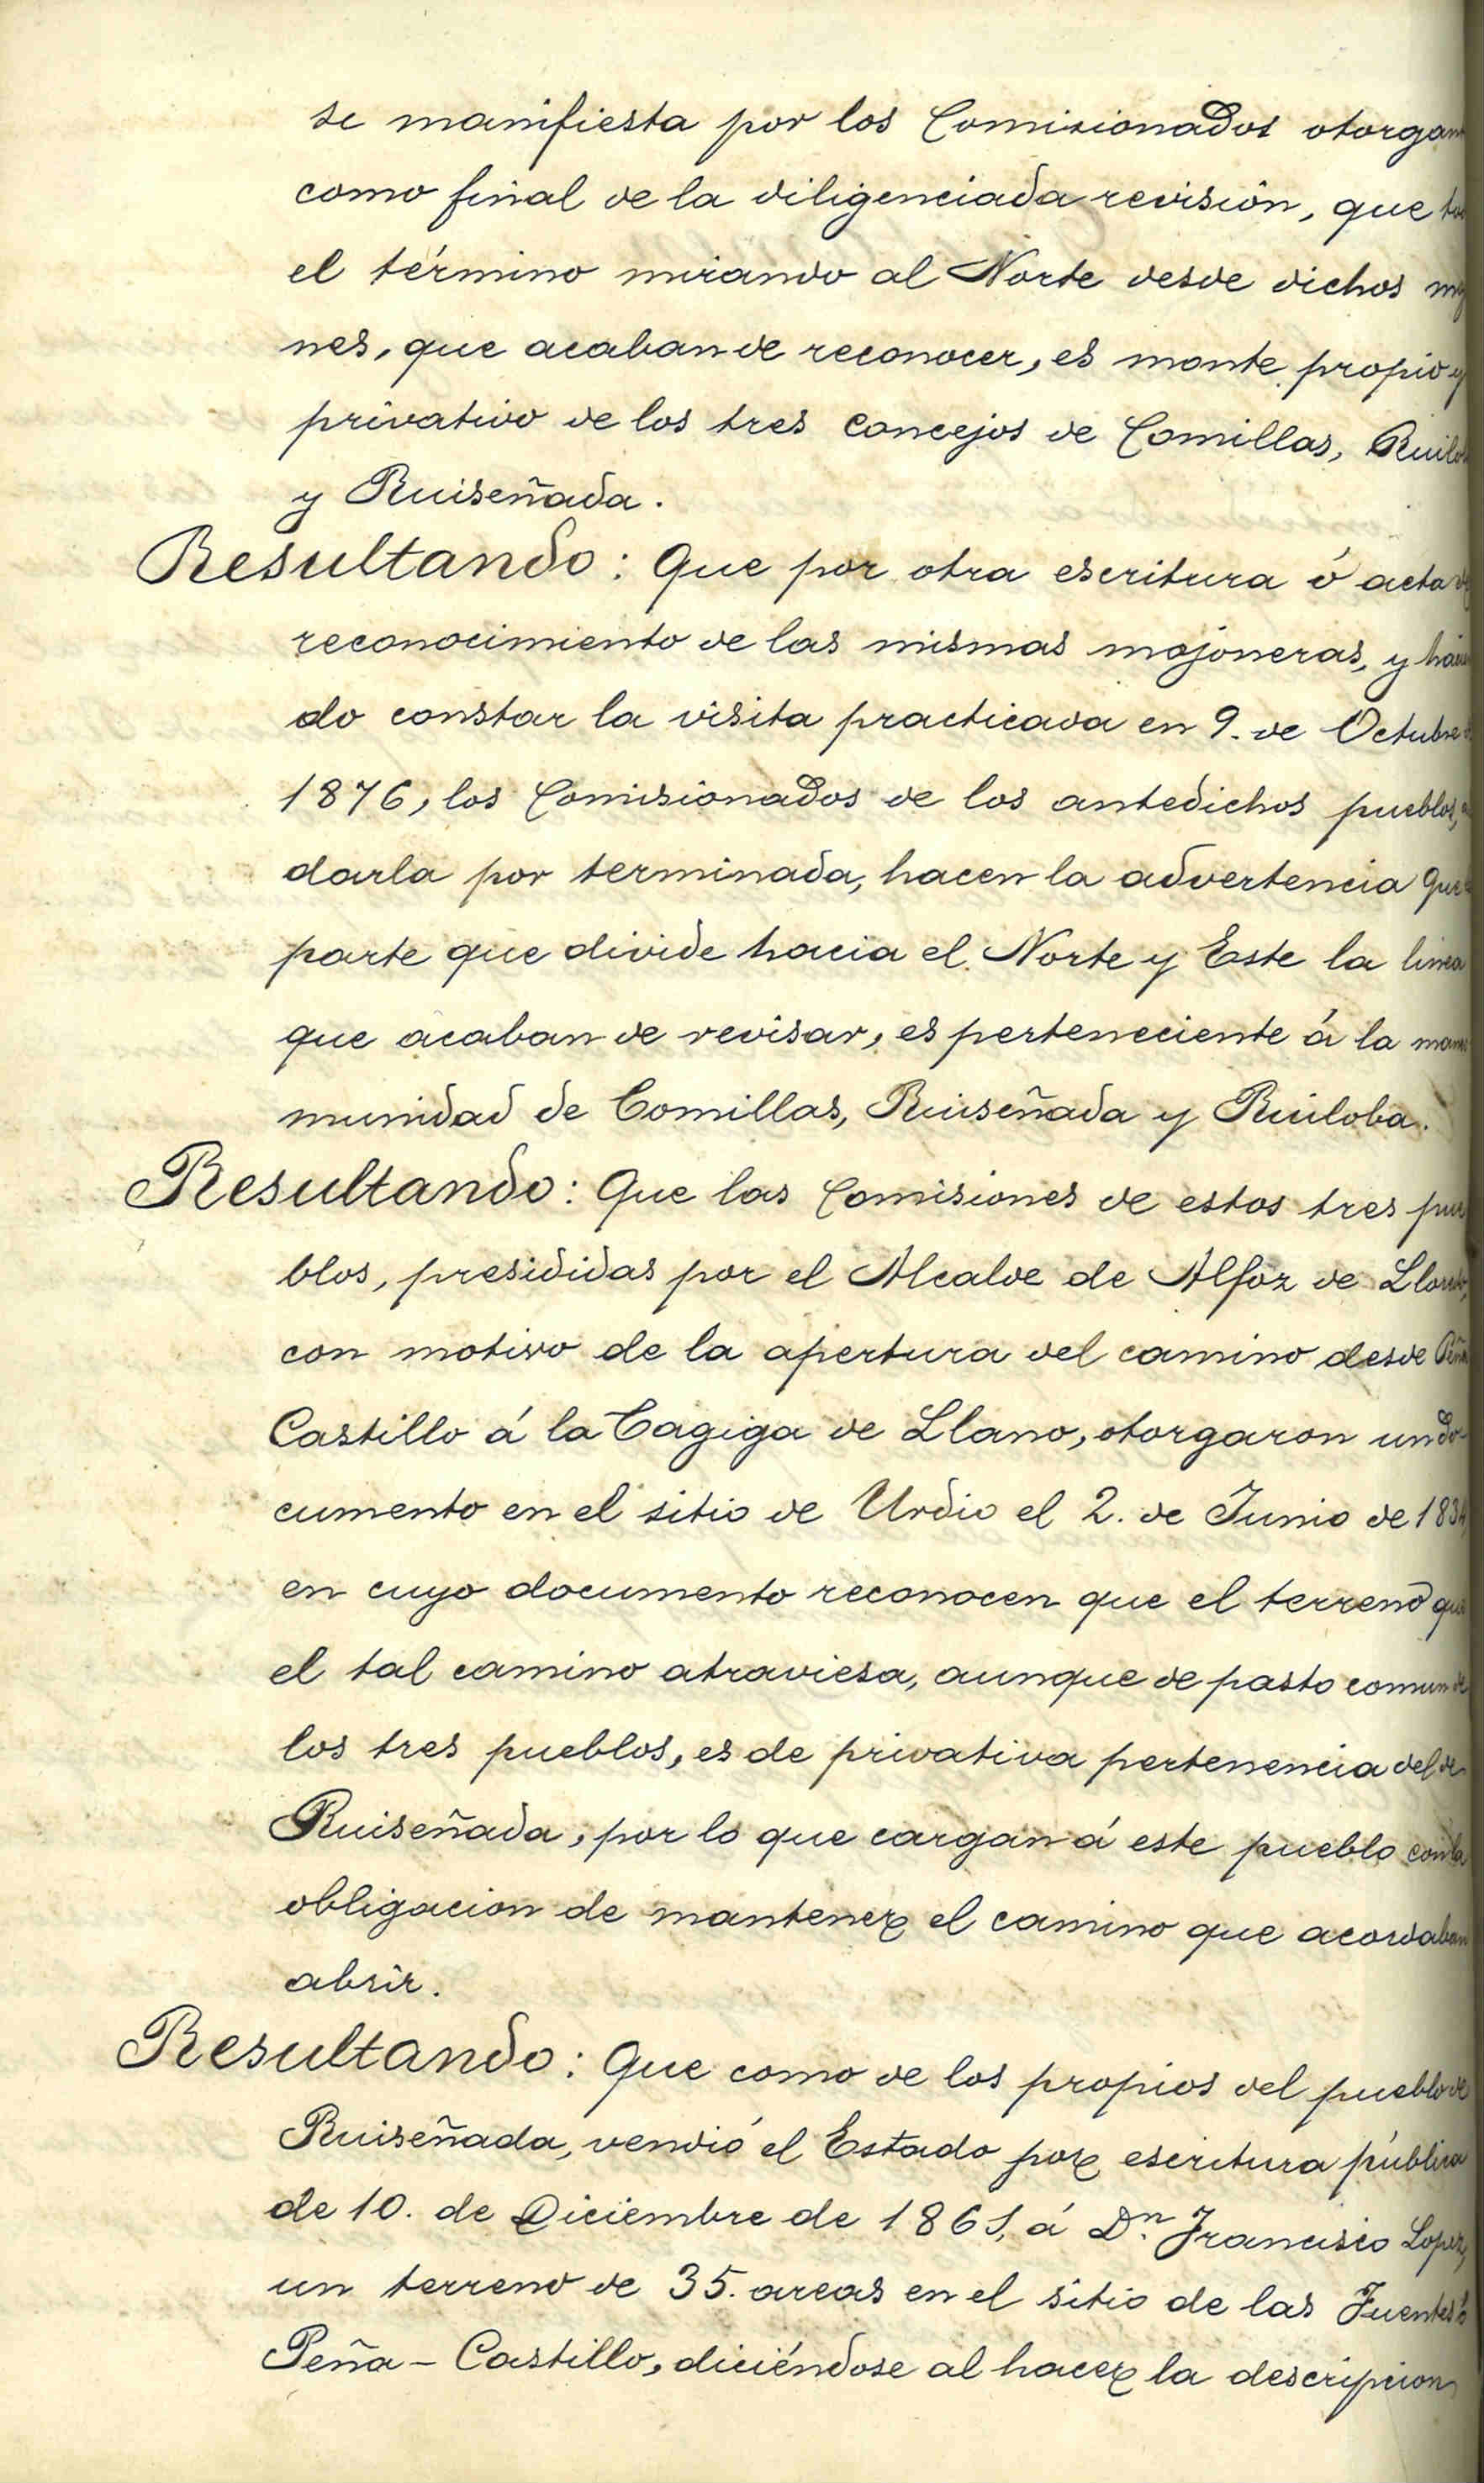 se manifiesta por los Comisionados otorgan
como final de la diligenciada revisión, que
el término mirando al Norte desde dichos
nes, que acaban de reconocer, es monte propio y
privativo de los tres concejos de Comillas, Ruilo
y Ruiseñada.
Resultando: Que por otra escritura ó acta de
reconocimiento de las mismas mojoneras, y
do constar la visita practicada en 9. de Octubre
1876, los Comisionados de los antedichos pueblos,
darla por terminada, hacen la advertencia que
parte que divide hacia el Norte y Este la linea
que acaban de revisar, es perteneciente á la man
munidad de Comillas, Ruiseñada y Ruiloba.
Resultando: Que las Comisiones de estos tres pue
blos, presididas por el Alcalde de Alfoz de Lloredo,
con motivo de la apertura del camino desde Peña
Castillo á la Cagiga de Llano, otorgaron un do-
cumento en el sitio de Urdio el 2. de Junio de 1834
en cuyo documento reconocen que el terreno que
el tal camino atraviesa, aunque de pasto comun de
los tres pueblos, es de privativa pertenencia del de
Ruiseñada, por lo que cargan á este pueblo con la
obligacion de mantener el camino que acordaban
abrir.
Resultando: Que como de los propios del pueblo de
Ruiseñada, vendió el Estado por escritura pública
de 10. de Diciembre de 1861, á Dn. Francisco Lopez,
un terreno de 35. areas en el sitio de las Fuentes ó
Peña-Castillo, diciéndose al hacer la descripcion